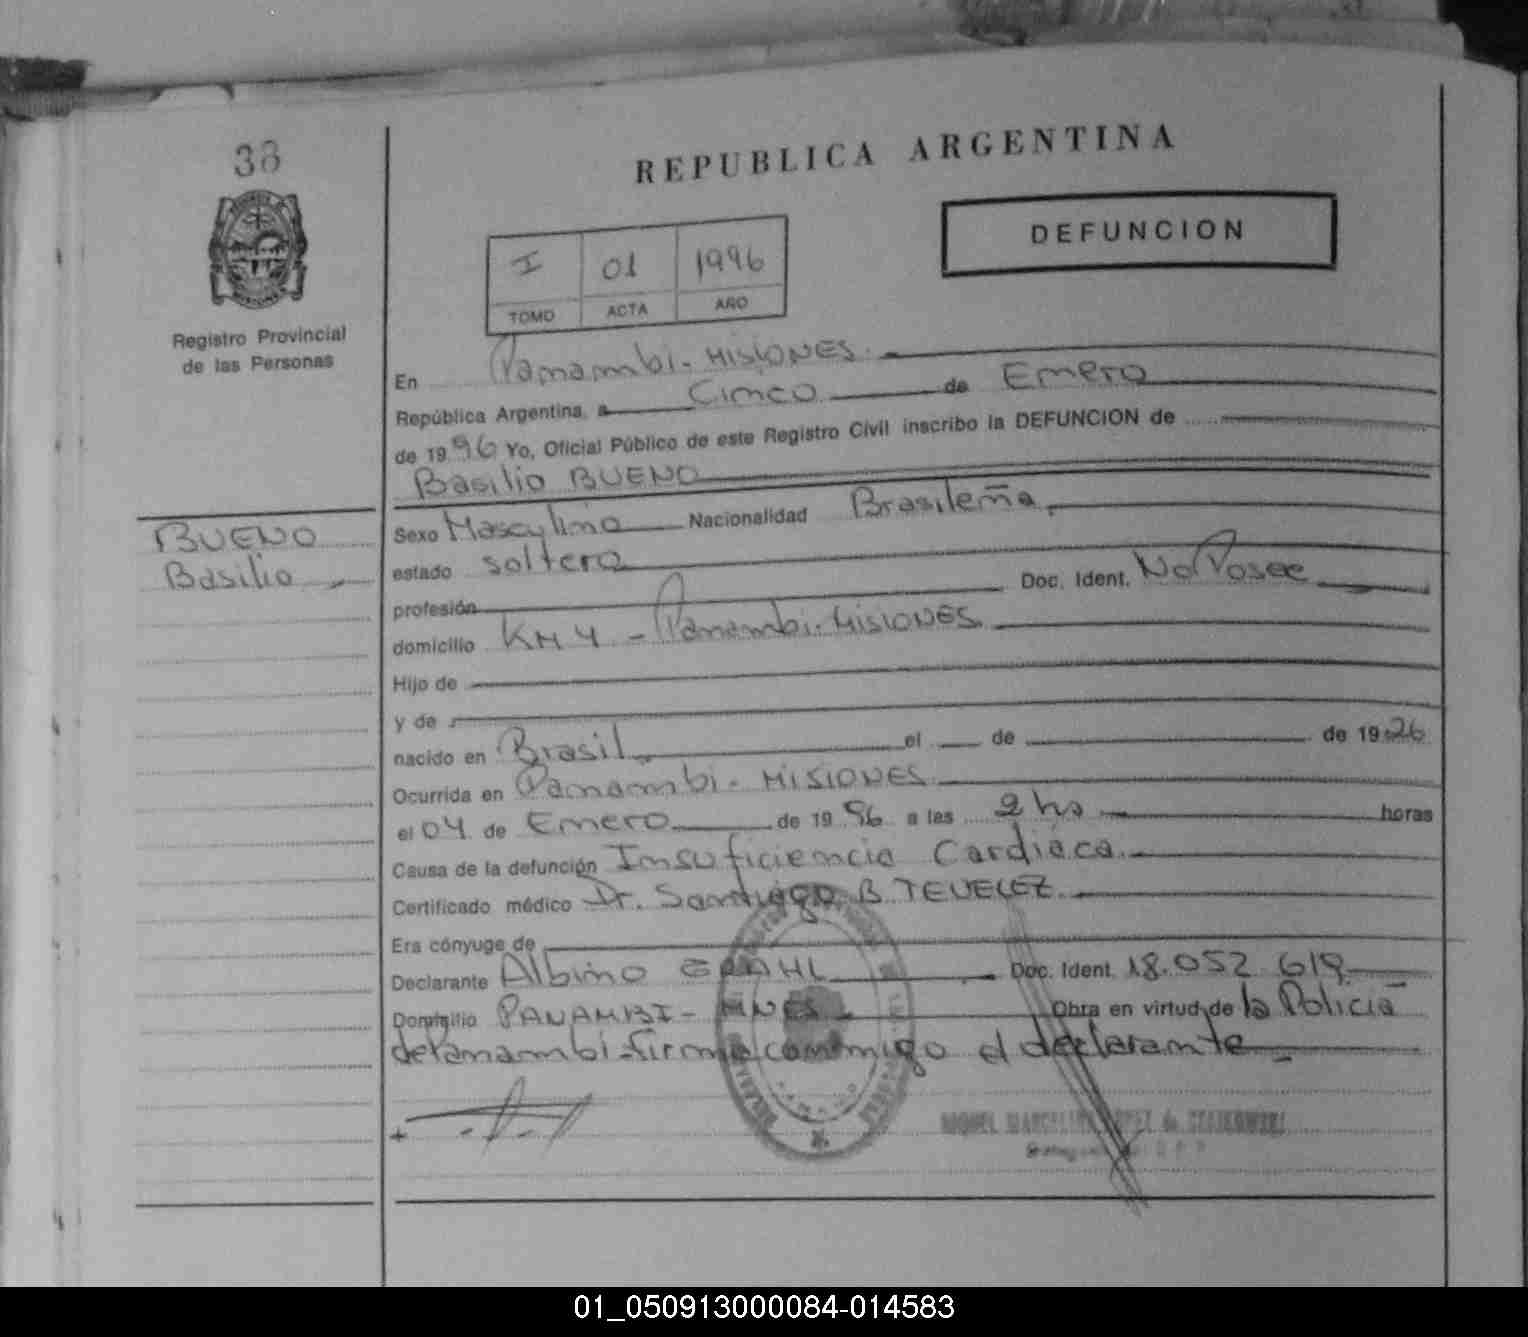 38
REPUBLICA ARGENTINA
DEFUNCION
I 01 1996
TOMO ACTA AÑO
Registro Provincial
de las Personas
En Panambi - MISIONES.
República Argentina, a Cinco de Enero
de 1996 Yo, Oficial Público de este Registro Civil inscribo la DEFUNCION de
Basilio BUENO
BUENO
Basilio
Sexo Masculino Nacionalidad Brasileña
estado soltero
profesión Doc. Ident. No Posee
domicilio KM 4 - Panambi - MISIONES
Hijo de
y de
nacido en Brasil el de de 1926
Ocurrida en Panambi - MISIONES
el 04 de Enero de 1996 a las 2 hs horas
Causa de la defunción Insuficiencia Cardíaca.
Certificado médico Dr. Santiago B. TEVELEZ.
Era cónyuge de
Declarante Albino Doc. Ident. 18.052.619
Domicilio PANAMBI - MNES. Obra en virtud de la Policia
de Panambi - firma conmigo el declarante
01_050913000084-014583